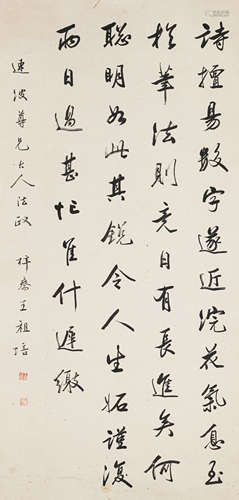 詩擅易數字遂近浣花氣息至
於筆法則竟日有長進矣何
聰明如此其銳令人生妬謹復
兩日過甚忙冗什遲繳
連波尊兄大人法政 梓齋王祖培